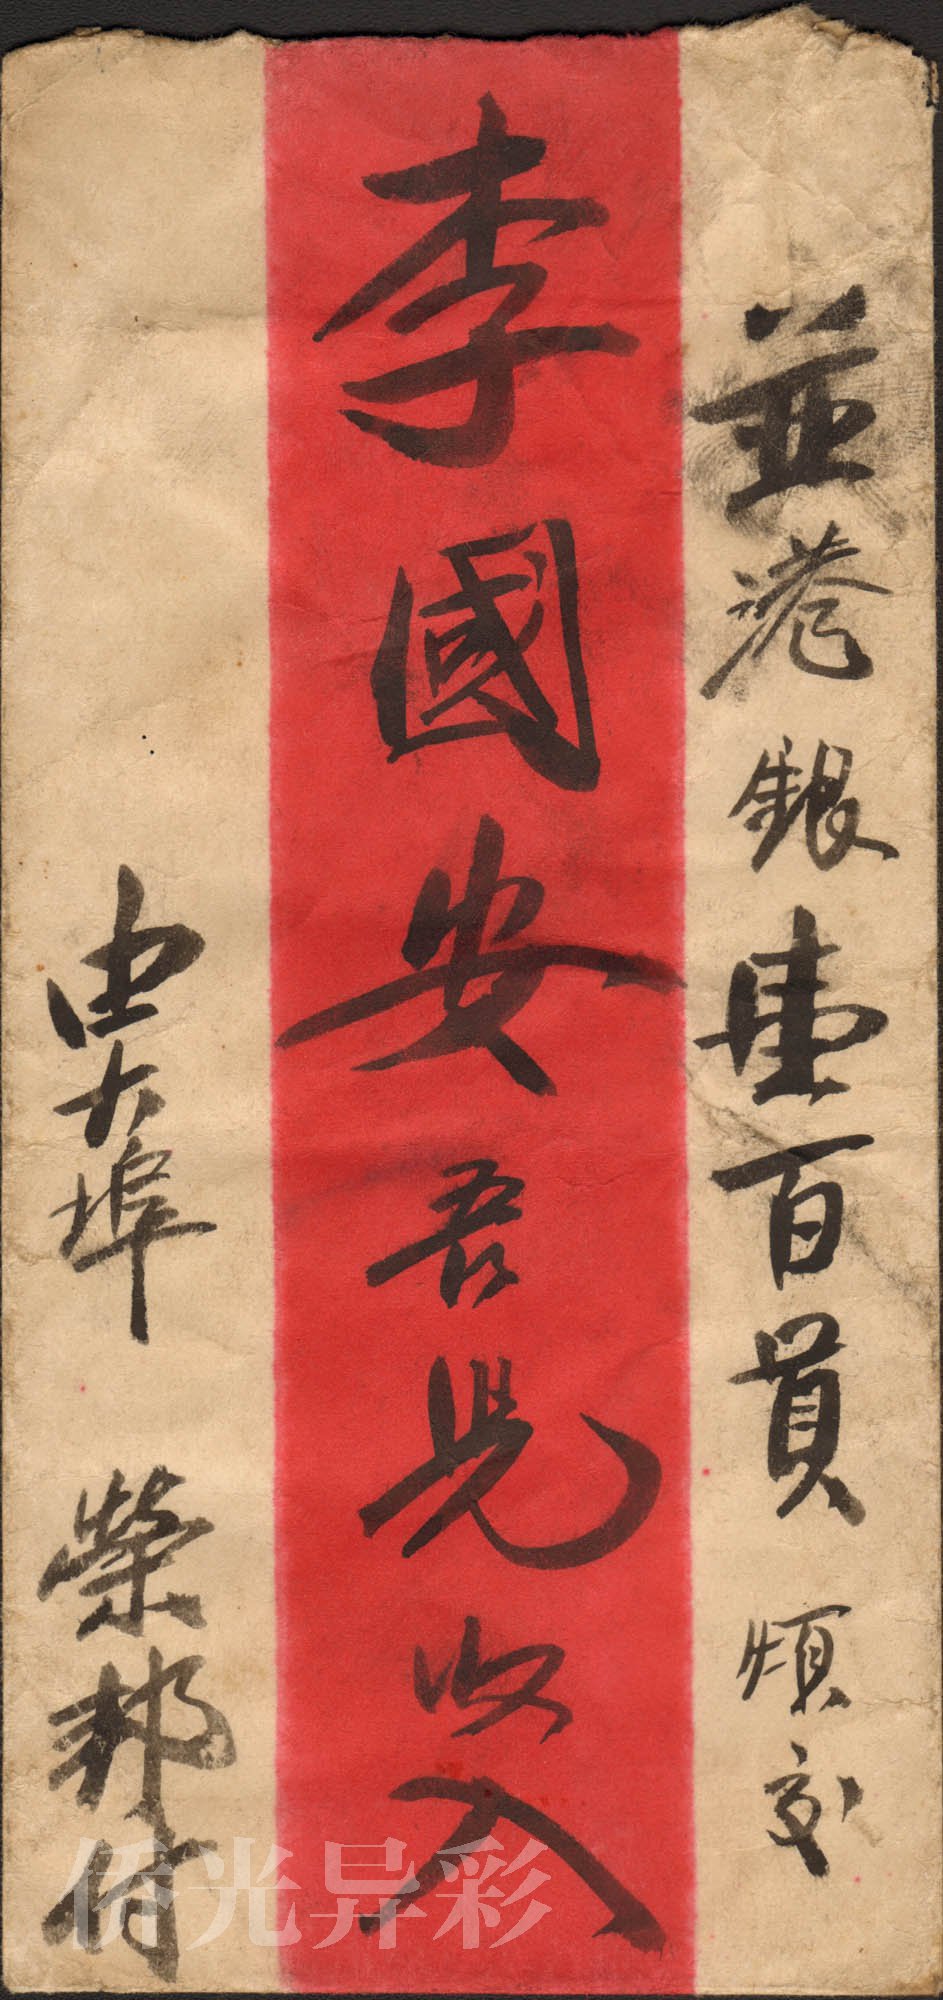 並港銀壹百員煩交
李國安吾兄收入
由大埠 榮邦付
侨光异彩